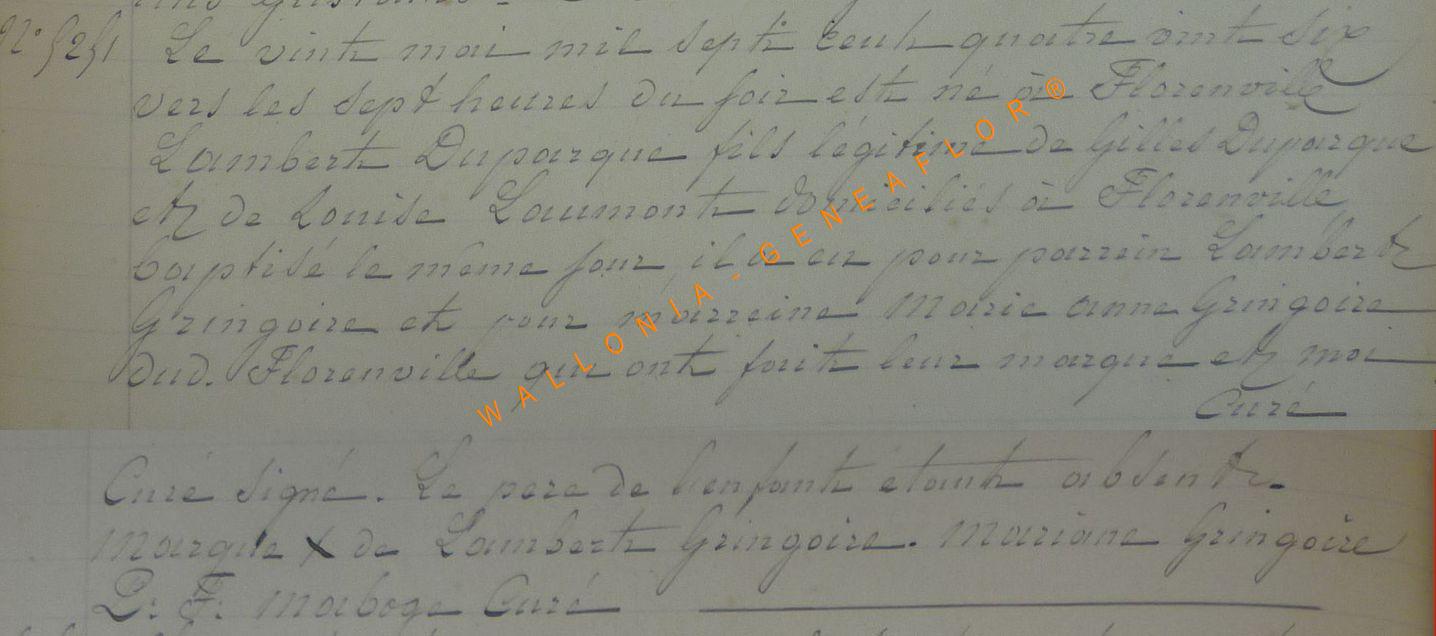 N° 5251 Le vint mai mil sept cent quatre vint six
vers les sept heures du soir est né à Florenville
Lambert Duparque fils légitime de Gilles Duparque
et de Louise Laumont domiciliés à Florenville
baptisé le même jour, il a eu pour parrein Lambert
Gringoire et pour marreine Marie anne Gringoire
dud. Florenville qui ont fait leur marque et moi
Curé
Curé signé. Le pere de l'enfant étant absent.
Marque x de Lambert Gringoire. Mariane Gringoire
P: F: Maboge Curé
WALLONIA - GENEAFLOR ®